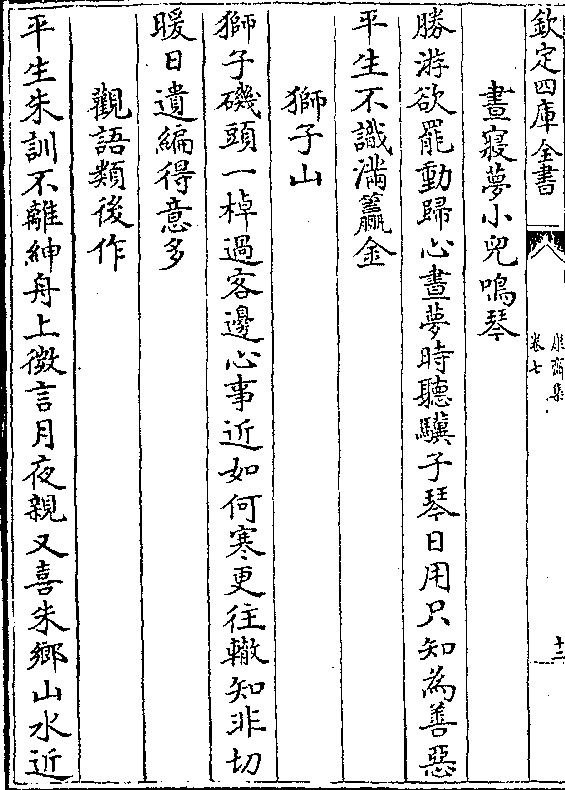 欽定四庫全書
卷七
十二
晝寢夢小兒鳴琴
勝游欲罷動歸心晝夢時聽驥子琴日用只知為善惡
平生不識滿籯金
獅子山
獅子磯頭一棹過客邊心事近如何寒更往轍知非切
暖日遺編得意多
觀語類後作
平生朱訓不離紳舟上微言月夜親又喜朱鄉山水近